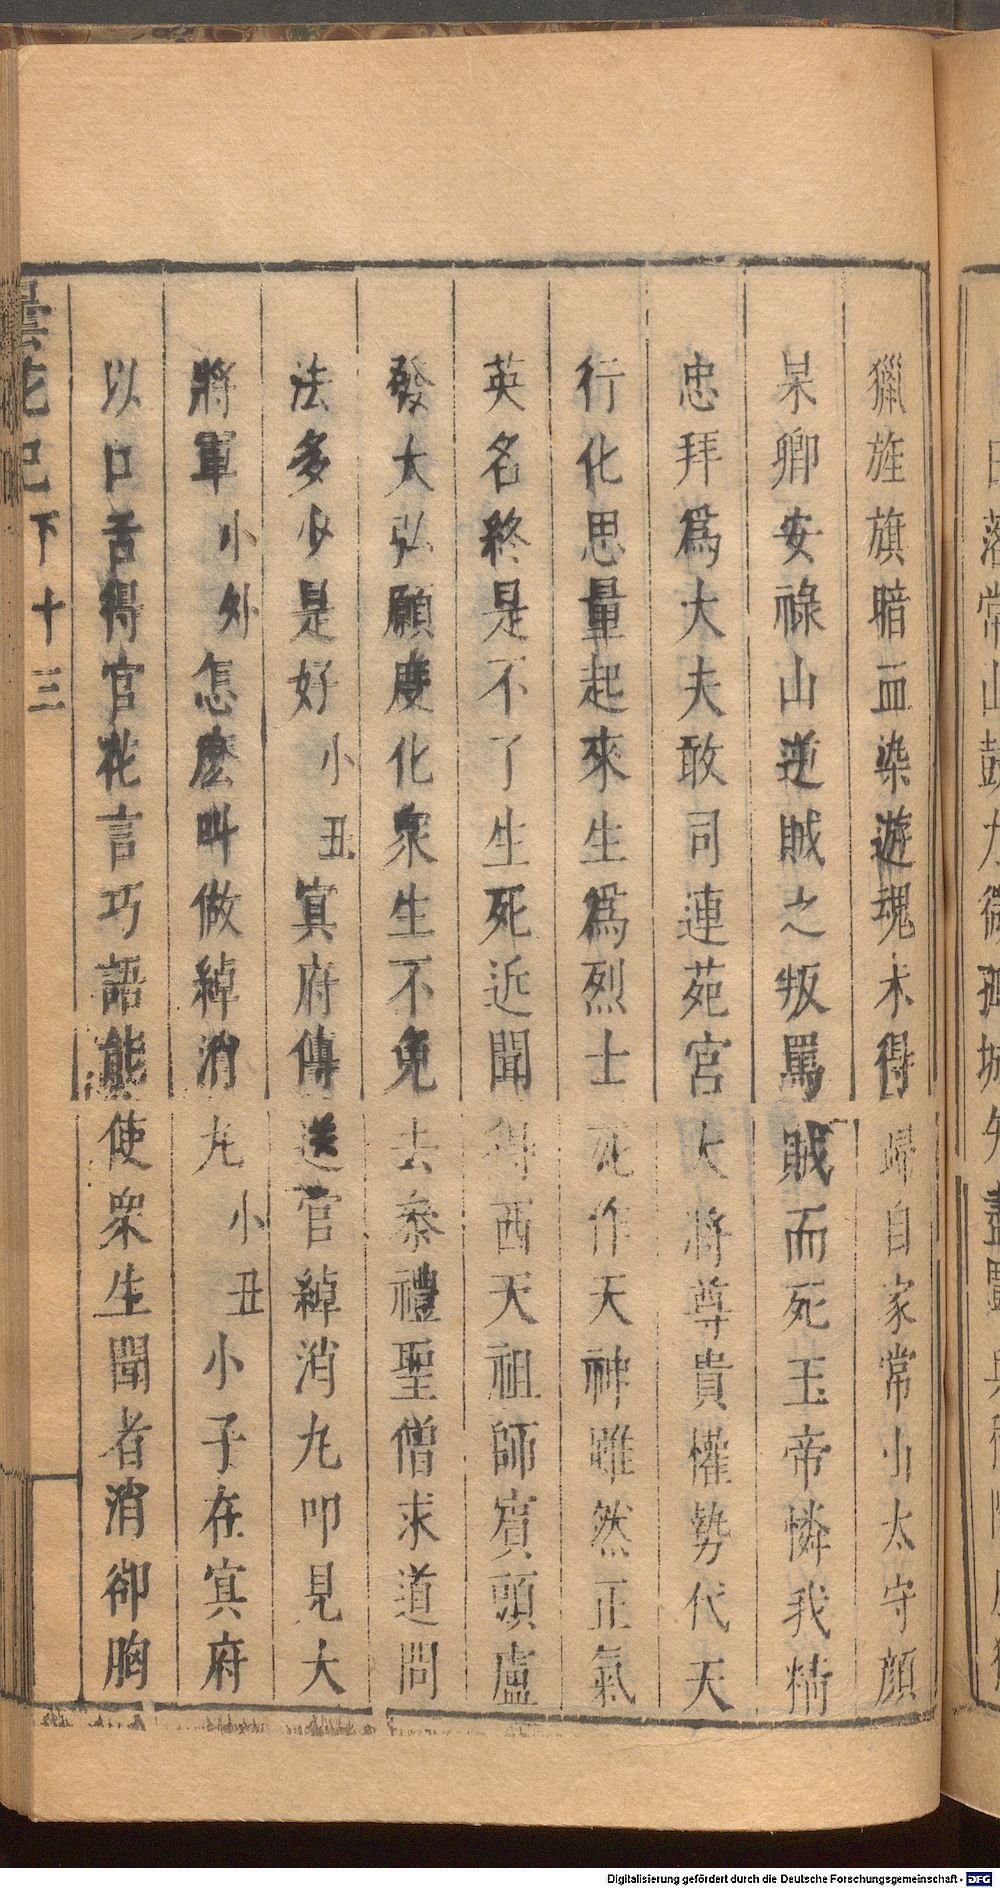 獵旌旗暗血染遊魂未得歸自家常山太守顏
杲卿安祿山逆賊之叛罵賊而死玉帝憐我精
忠拜爲大夫敢司連苑宮大將尊貴權勢代天
行化思量起來生爲烈士死作天神雖然正氣
英名終是不了生死近聞得西天祖師賓頭盧
發大弘願度化衆生不免去叅禮聖僧求道問
法多少是好小丑冥府傳送官綽消九叩見大
將軍小外怎麼叫做綽消九小丑小子在冥府
以口舌得官花言巧語能使衆生聞者消卻胸
曇花記下十三
Digitalisierung gefördert durch die Deutsche Forschungsgemeinschaft - DFG